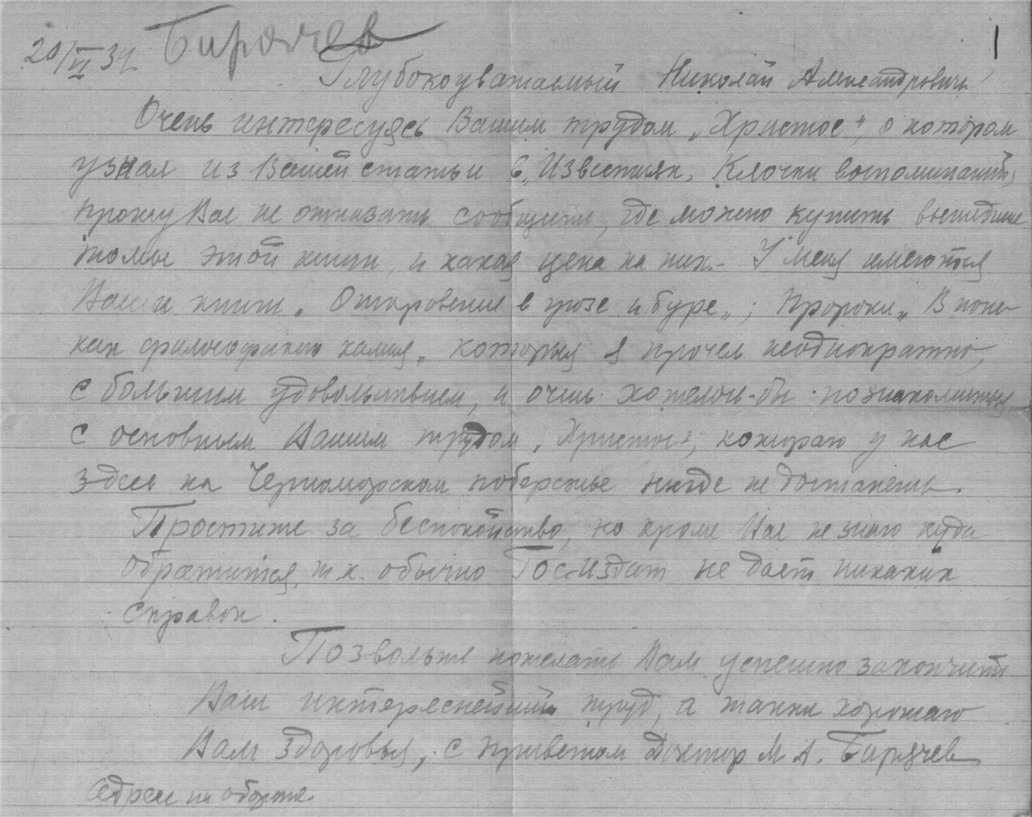 20/VI 31 Бирючев 1
Глубокоуважаемый Николай Александрович!
Очень интересуясь Вашим трудом „Христос", о котором
узнал из Вашей статьи в „Известиях„ Клочки воспоминаний,
прошу Вас не отказать сообщить, где можно купить вышедшие
томы этой книги, и какая цена на них. У меня имеются
Ваши книги „Откровение в грозе и буре„; Пророки„ В поис-
ках философского камня„ которыя я прочел неоднократно,
с большим удовольствием, и очень хотелось-бы познакомиться
с основным Вашим трудом „Христос", котораго у нас
здесь на Черноморском побережье нигде не достанешь.
Простите за беспокойство, но кроме Вас не знаю куда
обратится, т.к. обычно Госиздат не дает никаких
справок.
Позвольте пожелать Вам успешно закончить
Ваш интереснейший труд, а также хорошаго
Вам здоровья, с приветом Доктор М. А.
Адрес на обороте.